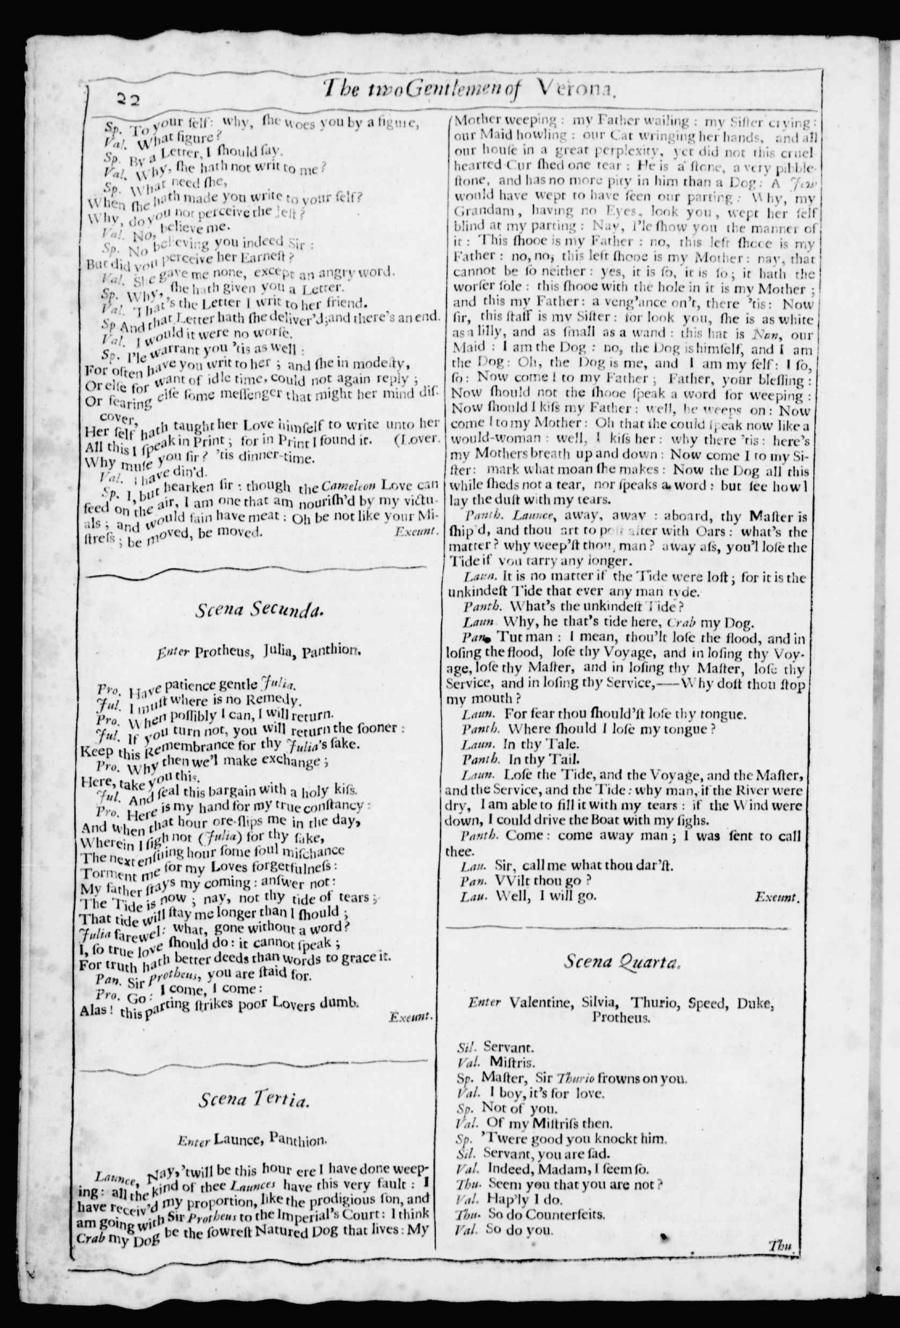 22
The two Gentlemen of Verona.
Sp. To your ſelf: why, ſhe woes you by a figure,
Val. What figure?
Sp. By a Letter, I ſhould ſay.
Val. Why, ſhe hath not writ to me?
Sp. What need ſhe,
When ſhe hath made you write to your ſelf?
Why, do you not perceive the Jeſt?
Val. No, believe me.
Sp. No believing you indeed Sir:
But did you perceive her Earneſt?
Val. She gave me none, except an angry word.
Sp. Why, ſhe hath given you a Letter.
Val. That's the Letter I writ to her friend.
Sp And that Letter hath ſhe deliver'd; and there's an end.
Val. I would it were no worſe.
Sp. I'le warrant you 'tis as well:
For often have you writ to her; and ſhe in modeſty,
Or elſe for want of idle time, could not again reply;
Or fearing elſe ſome meſſenger that might her mind diſ-
cover,
Her ſelf hath taught her Love himſelf to write unto her
All this I ſpeak in Print; for in Print I found it. (Lover.
Why muſe you ſir? 'tis dinner-time.
Val. I have din'd.
Sp. I, but hearken ſir: though the Cameleon Love can
feed on the air, I am one that am nouriſh'd by my victu-
als; and would fain have meat: Oh be not like your Mi-
ſtreſs; be moved, be moved. Exeunt.
Scena Secunda.
Enter Protheus, Julia, Panthion.
Pro. Have patience gentle Julia.
Jul. I muſt where is no Remedy.
Pro. When poſſibly I can, I will return.
Jul. If you turn not, you will return the ſooner:
Keep this Remembrance for thy Julia's ſake.
Pro. Why then we'l make exchange;
Here, take you this.
Jul. And ſeal this bargain with a holy kiſs.
Pro. Here is my hand for my true conſtancy:
And when that hour ore-ſlips me in the day,
Wherein I ſigh not (Julia) for thy ſake,
The next enſuing hour ſome foul miſchance
Torment me for my Loves forgetfulneſs:
My father ſtays my coming: anſwer not:
The Tide is now; nay, not thy tide of tears;
That tide will ſtay me longer than I ſhould;
Julia farewel: what, gone without a word?
I, ſo true love ſhould do: it cannot ſpeak;
For truth hath better deeds than words to grace it.
Pan. Sir Protheus, you are ſtaid for.
Pro. Go: I come, I come:
Alas! this parting ſtrikes poor Lovers dumb.
Exeunt.
Scena Tertia.
Enter Launce, Panthion.
Launce, Nay, 'twill be this hour ere I have done weep-
ing: all the kind of thee Launces have this very fault: I
have receiv'd my proportion, like the prodigious ſon, and
am going with Sir Protheus to the Imperial's Court: I think
Crab my Dog be the ſowreſt Natured Dog that lives: My
Mother weeping: my Father wailing: my Siſter crying:
our Maid howling: our Cat wringing her hands, and all
our houſe in a great perplexity, yet did not this cruel
hearted Cur ſhed one tear: He is a ſtone, a very pibble-
ſtone, and has no more pity in him than a Dog: A Jew
would have wept to have ſeen our parting: Why, my
Grandam, having no Eyes, look you, wept her ſelf
blind at my parting: Nay, I'le ſhow you the manner of
it: This ſhooe is my Father: no, this left ſhooe is my
Father: no, no, this left ſhooe is my Mother: nay, that
cannot be ſo neither: yes, it is ſo, it is ſo; it hath the
worſer ſole: this ſhooe with the hole in it is my Mother;
and this my Father: a veng'ance on't, there 'tis: Now
ſir, this ſtaff is my Siſter: for look you, ſhe is as white
as a lilly, and as ſmall as a wand: this hat is Nan, our
Maid: I am the Dog: no, the Dog is himſelf, and I am
the Dog: Oh, the Dog is me, and I am my ſelf: I ſo,
ſo: Now come I to my Father; Father, your bleſſing:
Now ſhould not the ſhooe ſpeak a word for weeping:
Now ſhould I kiſs my Father: well, he weeps on: Now
come I to my Mother: Oh that ſhe could ſpeak now like a
would-woman: well, I kiſs her: why there 'tis: here's
my Mothers breath up and down: Now come I to my Si-
ſter: mark what moan ſhe makes: Now the Dog all this
while ſheds not a tear, nor ſpeaks a word: but ſee how I
lay the duſt with my tears.
Panth. Launce, away, away: aboard, thy Maſter is
ſhip'd, and thou art to poſt after with Oars: what's the
matter? why weep'ſt thou, man? away aſs, you'l loſe the
Tide if you tarry any longer.
Laun. It is no matter if the Tide were loſt; for it is the
unkindeſt Tide that ever any man tyde.
Panth. What's the unkindeſt Tide?
Laun Why, he that's tide here, Crab my Dog.
Pan. Tut man: I mean, thou'lt loſe the flood, and in
loſing the flood, loſe thy Voyage, and in loſing thy Voy-
age, loſe thy Maſter, and in loſing thy Maſter, loſe thy
Service, and in loſing thy Service,——Why doſt thou ſtop
my mouth?
Laun. For fear thou ſhould'ſt loſe thy tongue.
Panth. Where ſhould I loſe my tongue?
Laun. In thy Tale.
Panth. In thy Tail.
Laun. Loſe the Tide, and the Voyage, and the Maſter,
and the Service, and the Tide: why man, if the River were
dry, I am able to fill it with my tears: if the Wind were
down, I could drive the Boat with my ſighs.
Panth. Come: come away man; I was ſent to call
thee.
Lau. Sir, call me what thou dar'ſt.
Pan. VVilt thou go?
Lau. Well, I will go. Exeunt.
Scena Quarta.
Enter Valentine, Silvia, Thurio, Speed, Duke,
Protheus.
Sil. Servant.
Val. Miſtris.
Sp. Maſter, Sir Thurio frowns on you.
Val. I boy, it's for love.
Sp. Not of you.
Val. Of my Miſtriſs then.
Sp. 'Twere good you knockt him.
Sil. Servant, you are ſad.
Val. Indeed, Madam, I ſeem ſo.
Thu. Seem you that you are not?
Val. Hap'ly I do.
Thu. So do Counterfeits.
Val. So do you.
Thu.